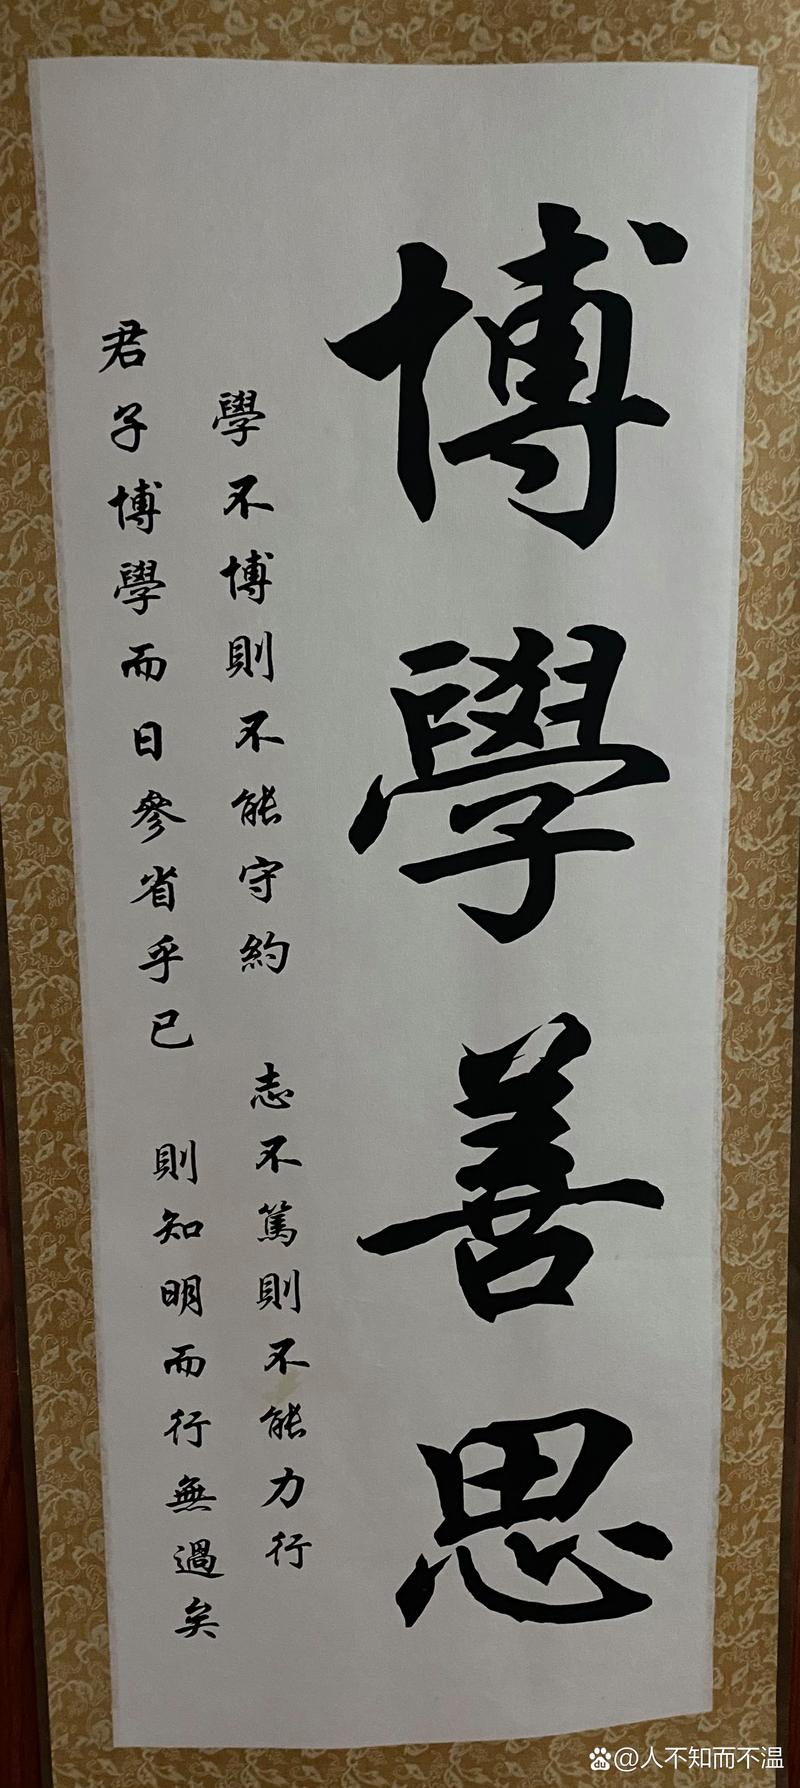 博學善思
學不博則不能守約 志不篤則不能力行
君子博學而日參省乎已 則知明而行無過矣
@人不知而不温